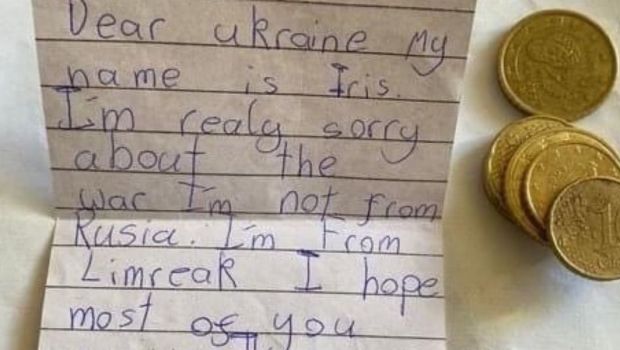 Dear ukraine My
name is Iris.
I'm realy sorry
about the
war I'm not from
Rusia. I'm From
Limreak I hope
most of you